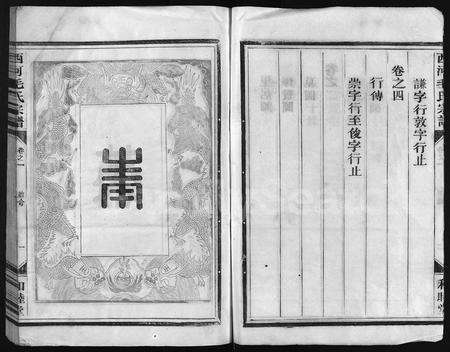 西河毛氏宗譜
和睦堂
謙字行敦字行止
卷之四
行傳
崇字行至俊字行止
西河毛氏宗譜
卷之一
一
和睦堂